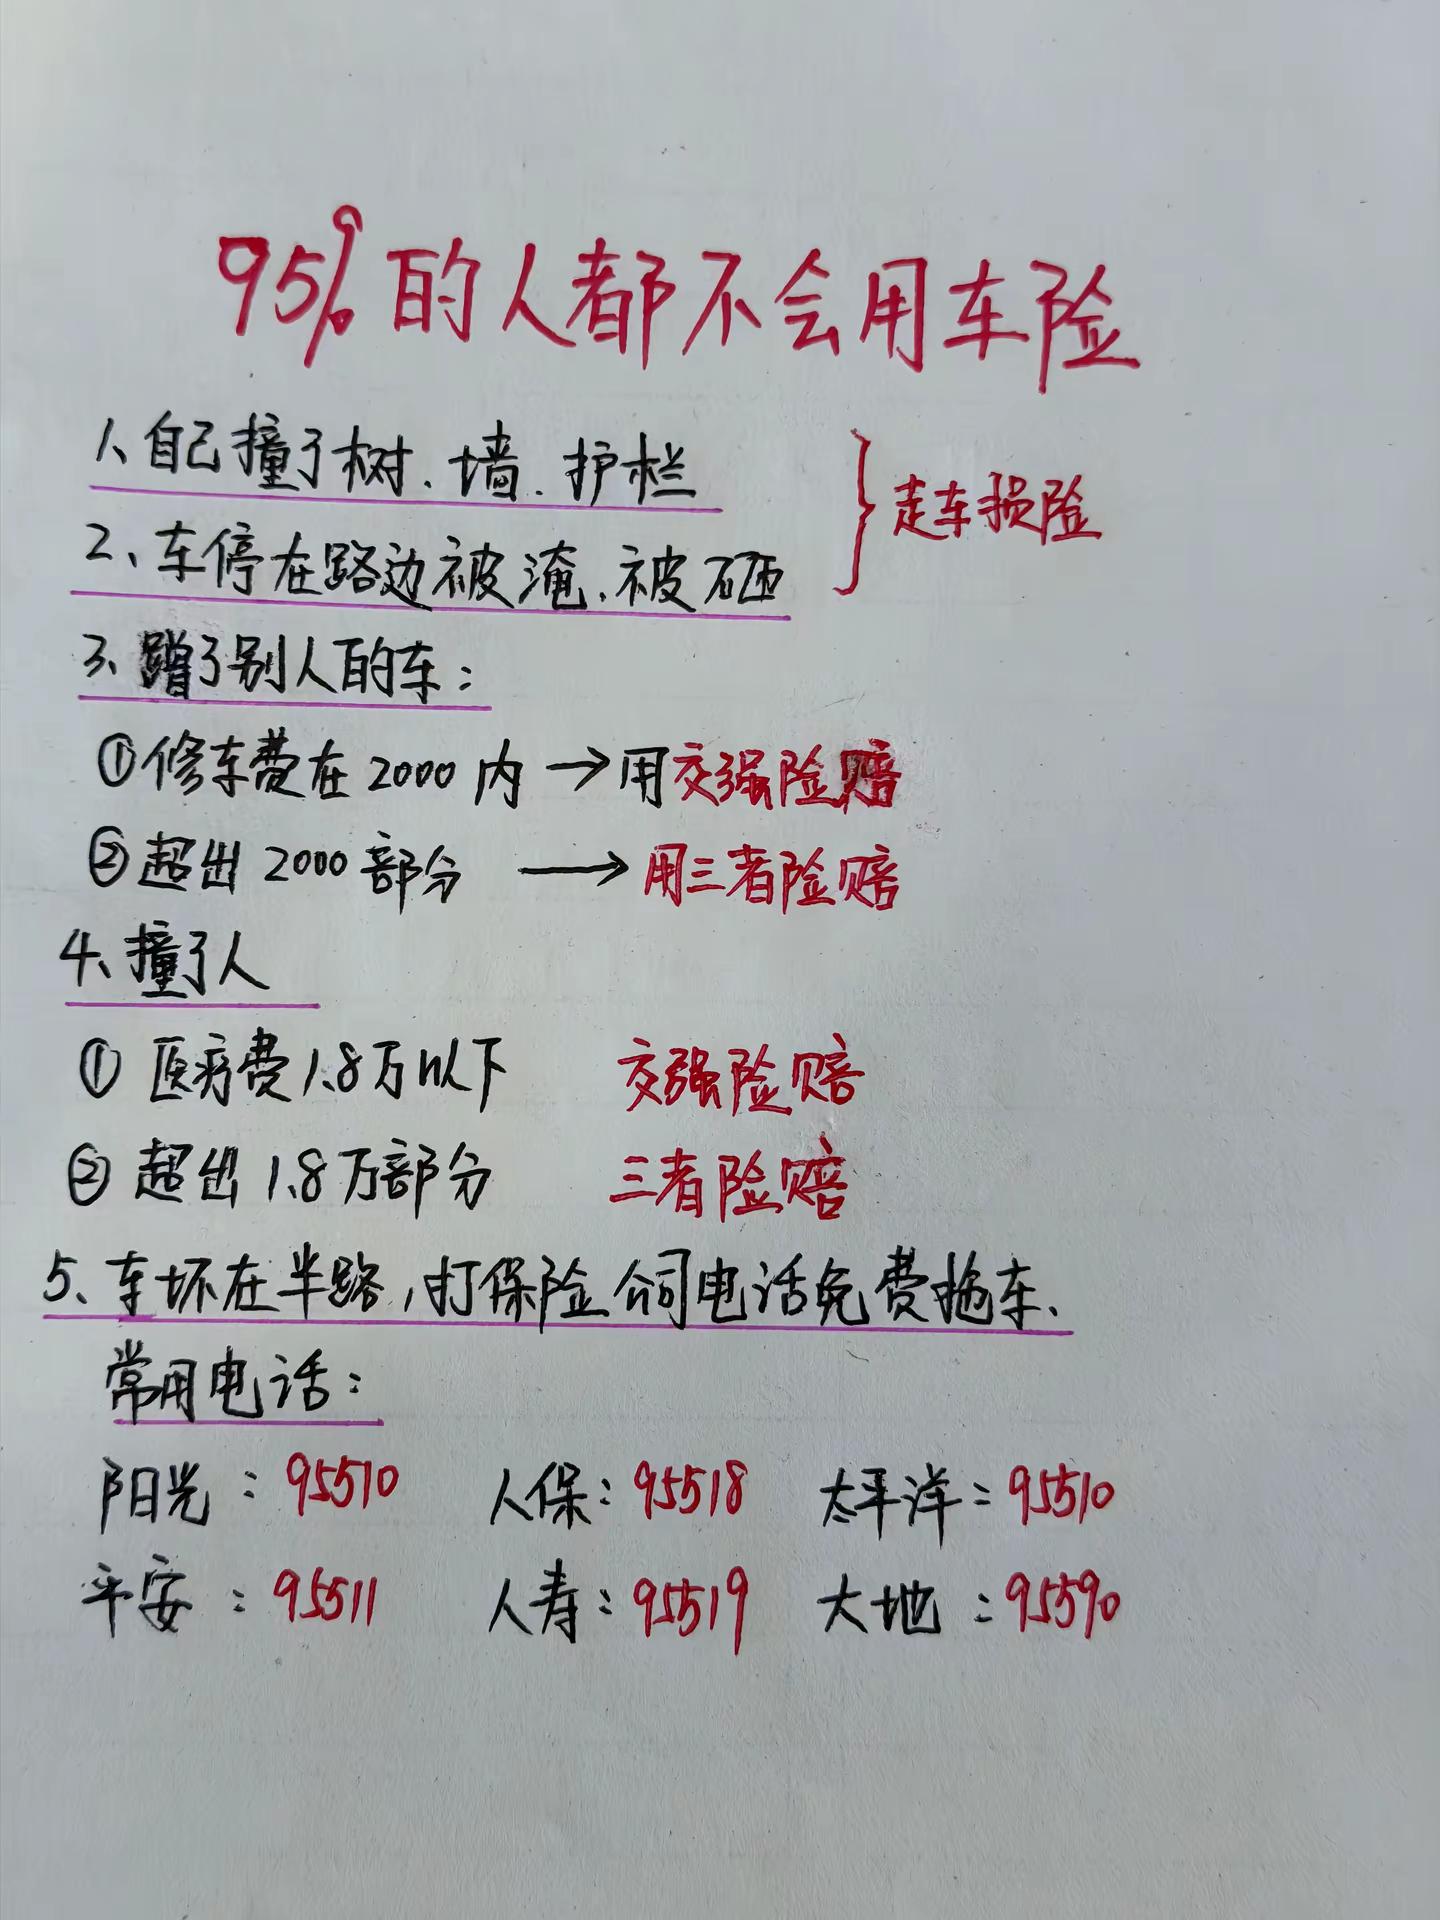 95%的人都不会用车险
1、自己撞了树、墙、护栏
2、车停在路边被淹、被砸
} 走车损险
3、蹭了别人的车:
①修车费在2000内 → 用交强险赔
②超出2000部分 → 用三者险赔
4、撞了人
① 医疗费1.8万以下 交强险赔
② 超出1.8万部分 三者险赔
5、车坏在半路,打保险公司电话免费拖车、
常用电话:
阳光:95510 人保:95518 太平洋:95510
平安:95511 人寿:95519 大地:95590